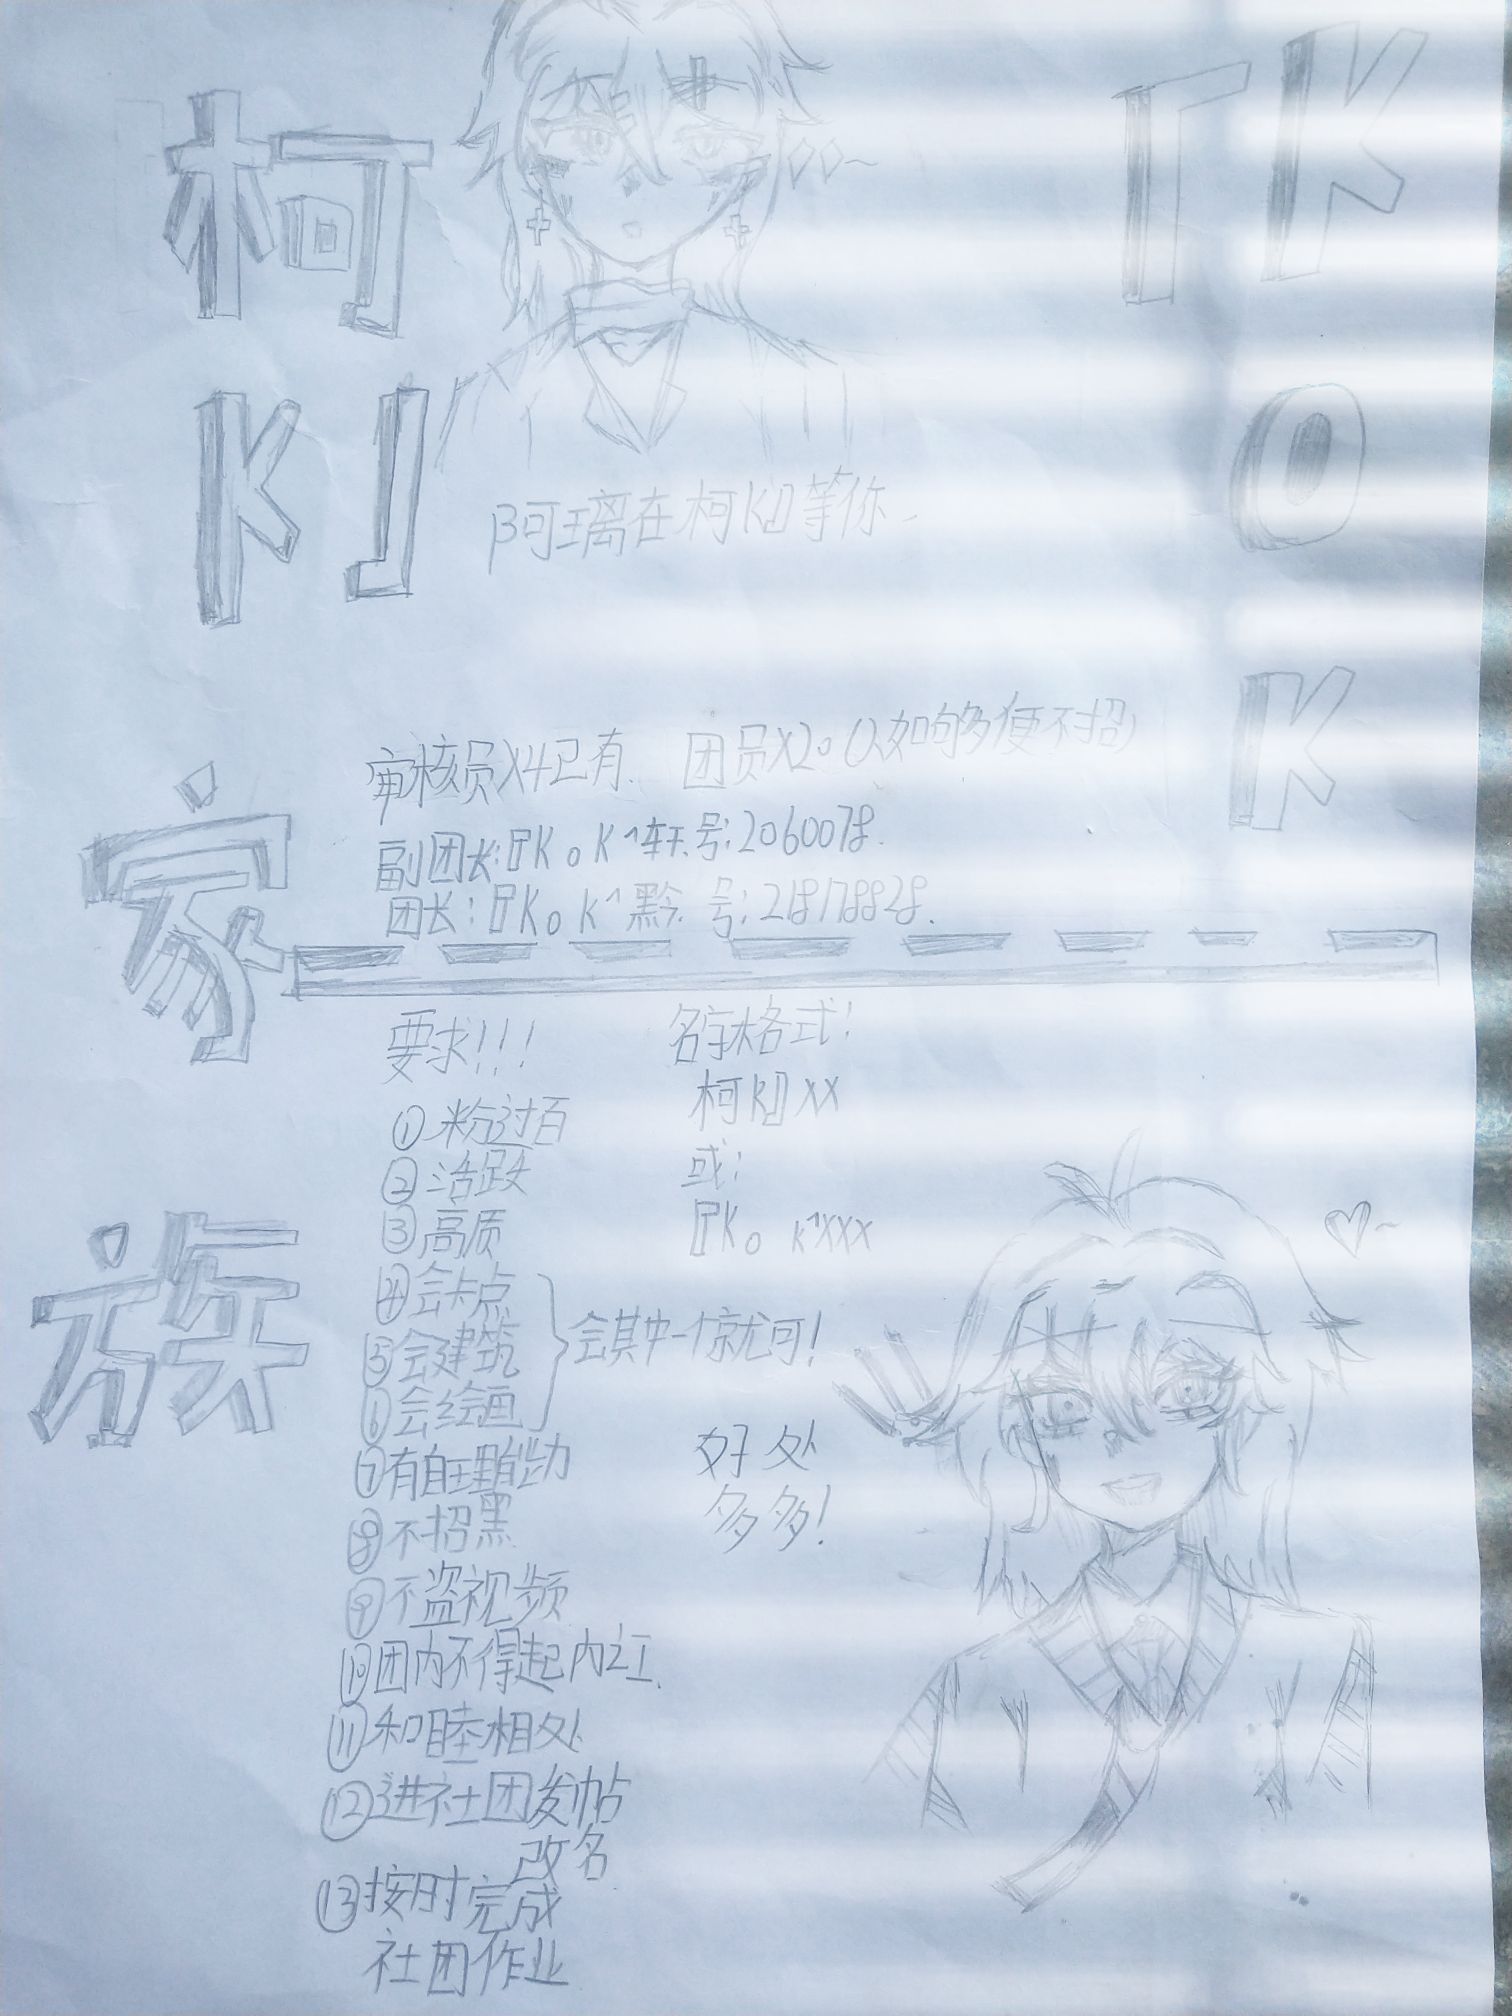 柯
KJ
家
族
TK
O
K
阿璃在柯KJ等你~
审核员X4已有. 团员X20(如够便不招)
副团长:TK。K^轩.号:2060078.
团长:TK。K^黔 号:218178828.
要求!!!
①粉过百
②活跃
③高质
④会卡点
⑤会建筑
⑥会绘画
会其中一个就可!
⑦有自理能力
⑧不招黑
⑨不盗视频
⑩团内不得起内讧.
⑪和睦相处
⑫进社团发帖
改名
⑬按时完成
社团作业
名字格式!
柯KJXX
或:
TK。K^XXX
好处
多多!